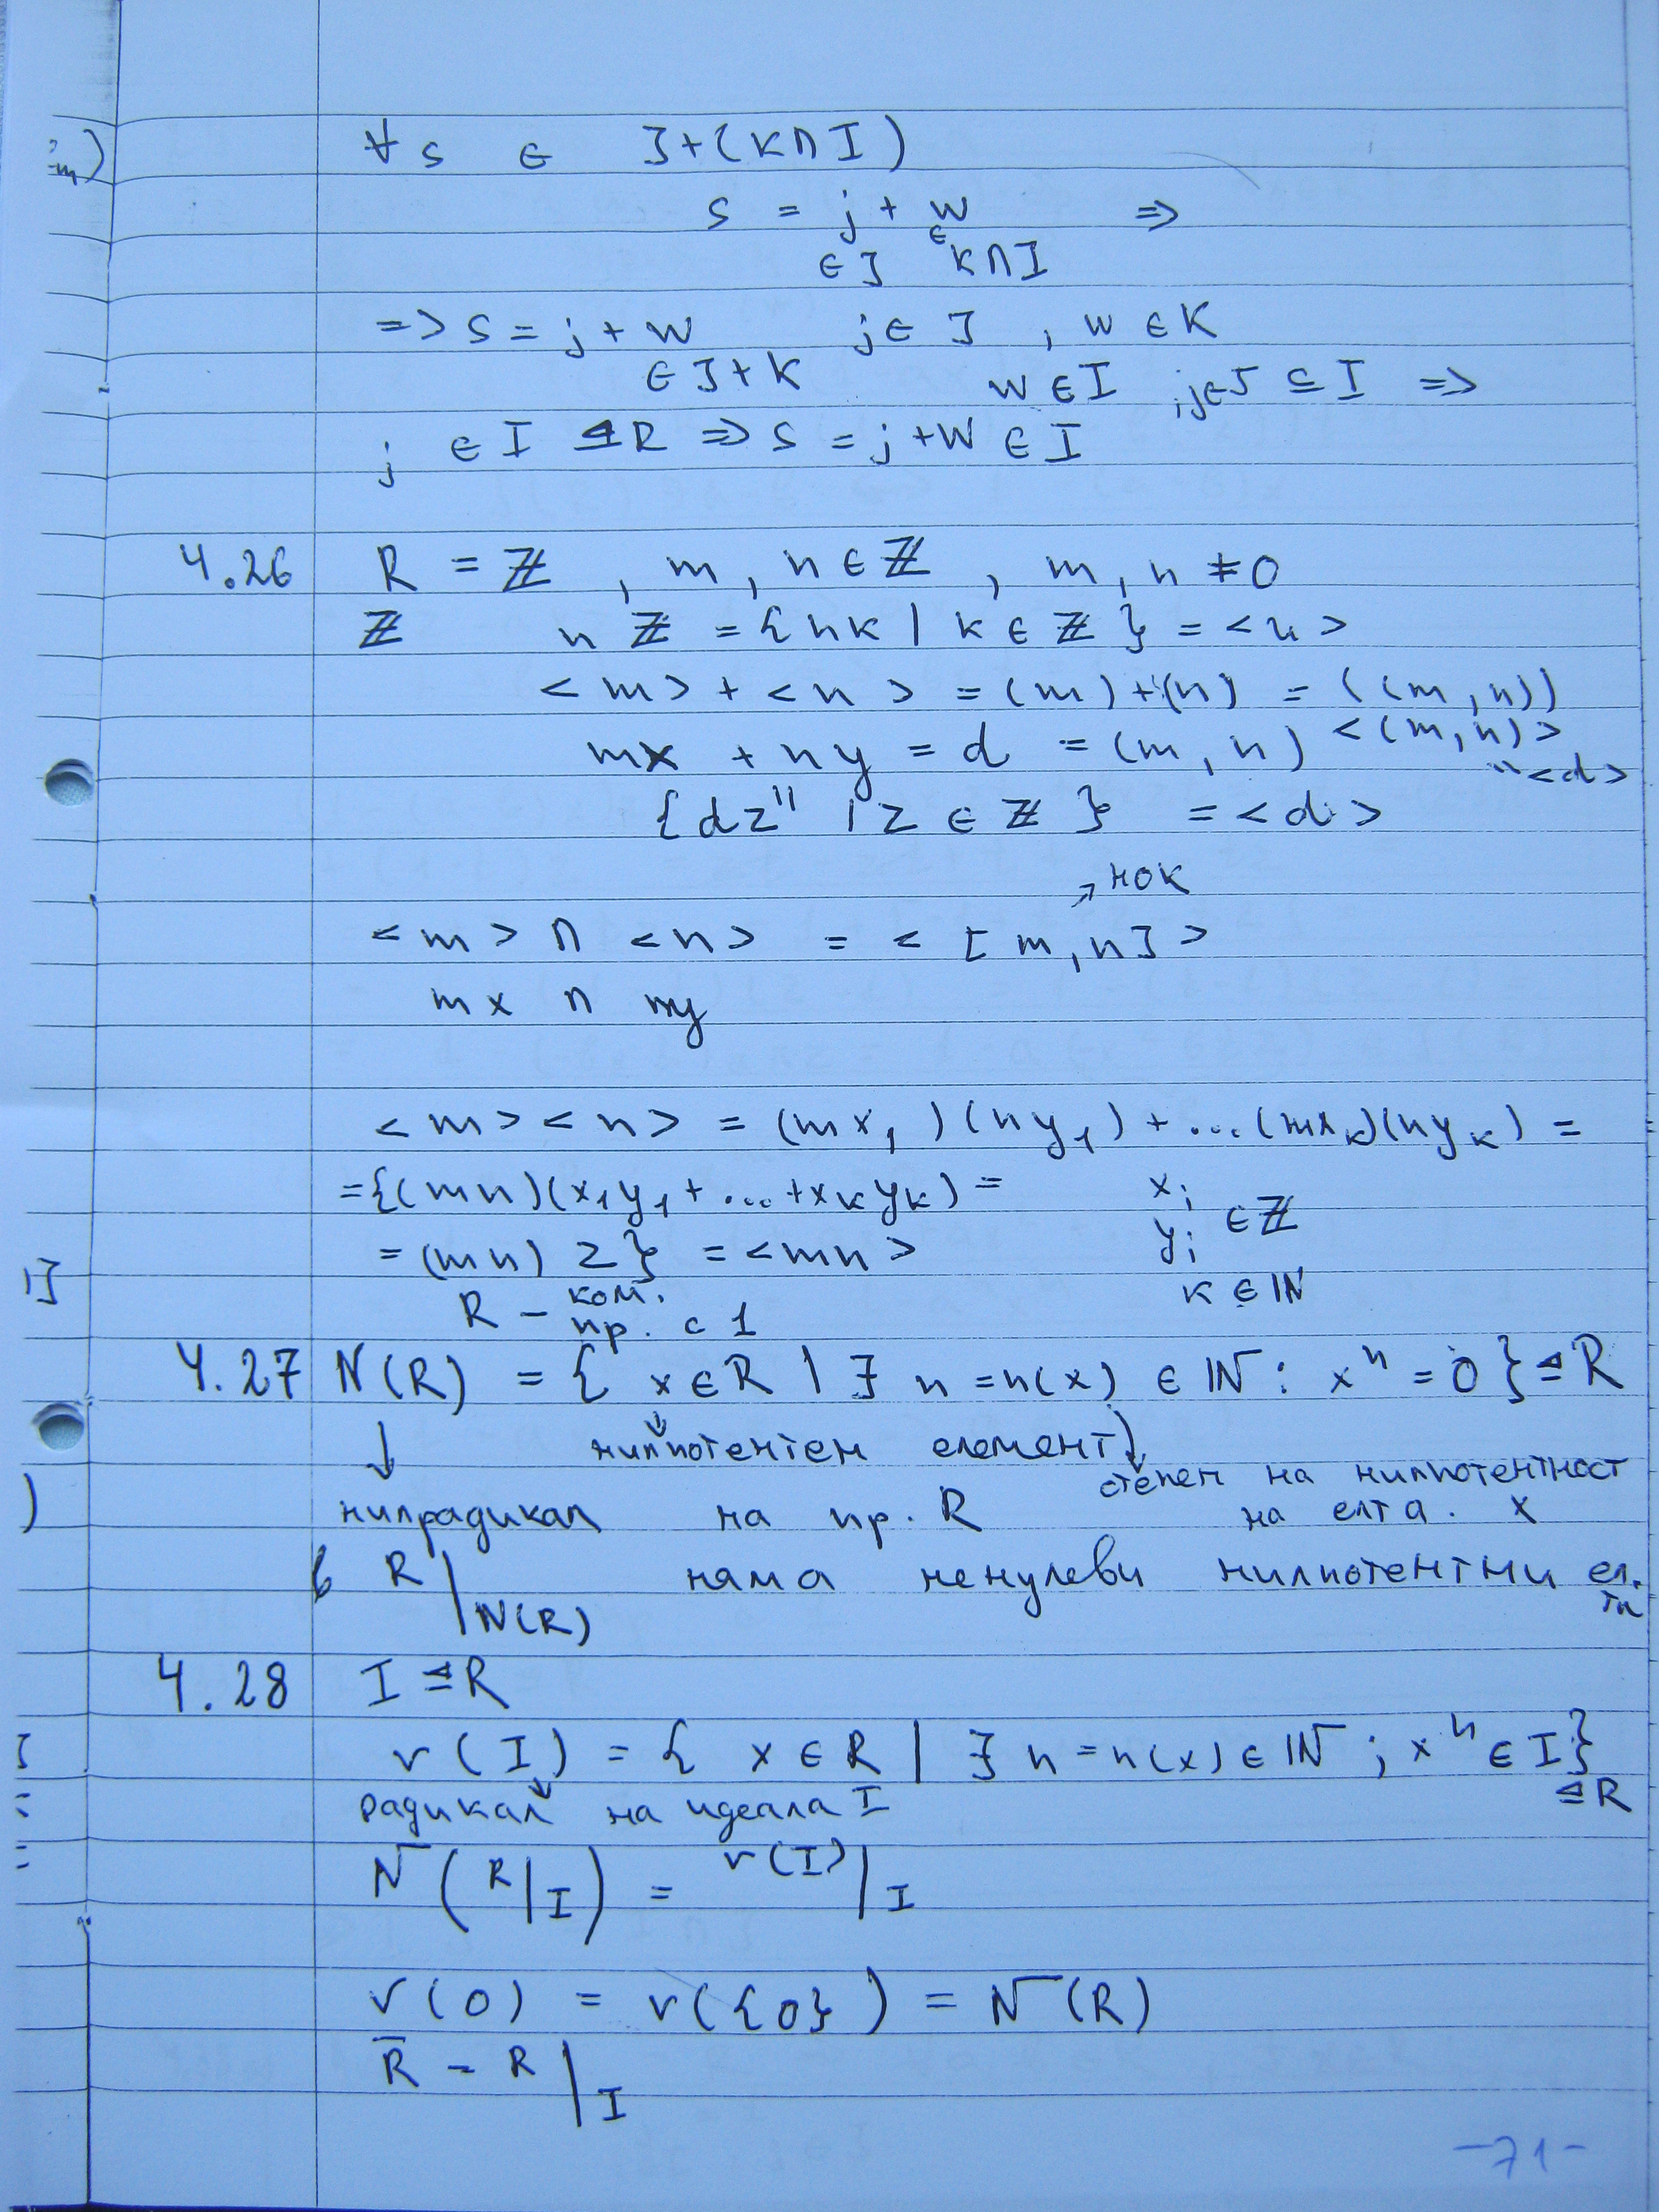 ∀ s ∈ J+(K∩I)
s = j + w ⇒
∈ J ∈ K∩I
=> s = j + w j ∈ J , w ∈ K
∈ J+K w ∈ I , j∈J ⊆ I ⇒
j ∈ I ⊴ R ⇒ s = j + w ∈ I
4.26 R = ℤ , m, n ∈ ℤ , m, n ≠ 0
ℤ nℤ = {nk | k ∈ ℤ } = <n>
<m> + <n> = (m)+(n) = ((m,n))
mx + ny = d = (m, n) <(m,n)>
" <d>
{dz" | z ∈ ℤ } = <d>
↗ НОК
<m> ∩ <n> = <[m,n]>
mx ∩ ny
<m><n> = (mx₁)(ny₁) + ...(mxₖ)(nyₖ) =
={(mn)(x₁y₁ + ... + xₖyₖ) = xᵢ
yᵢ ∈ ℤ
= (mn) z} = <mn>
k ∈ ℕ
R - ком.
пр. с 1
4.27 N(R) = { x∈R | ∃ n = n(x) ∈ ℕ : xⁿ = 0} ⊴ R
↓ нилпотентен елемент ↓
степен на нилпотентност
нилрадикал на пр. R на елта. x
в R | N(R) няма ненулеви нилпотентни ел.
ти
4.28 I ⊴ R
r(I) = { x ∈ R | ∃ n = n(x) ∈ ℕ ; xⁿ ∈ I}
⊴ R
радикал на идеала I
N( R | I ) = r(I) | I
r(0) = r({0}) = N(R)
R̅ - R | I
-71-